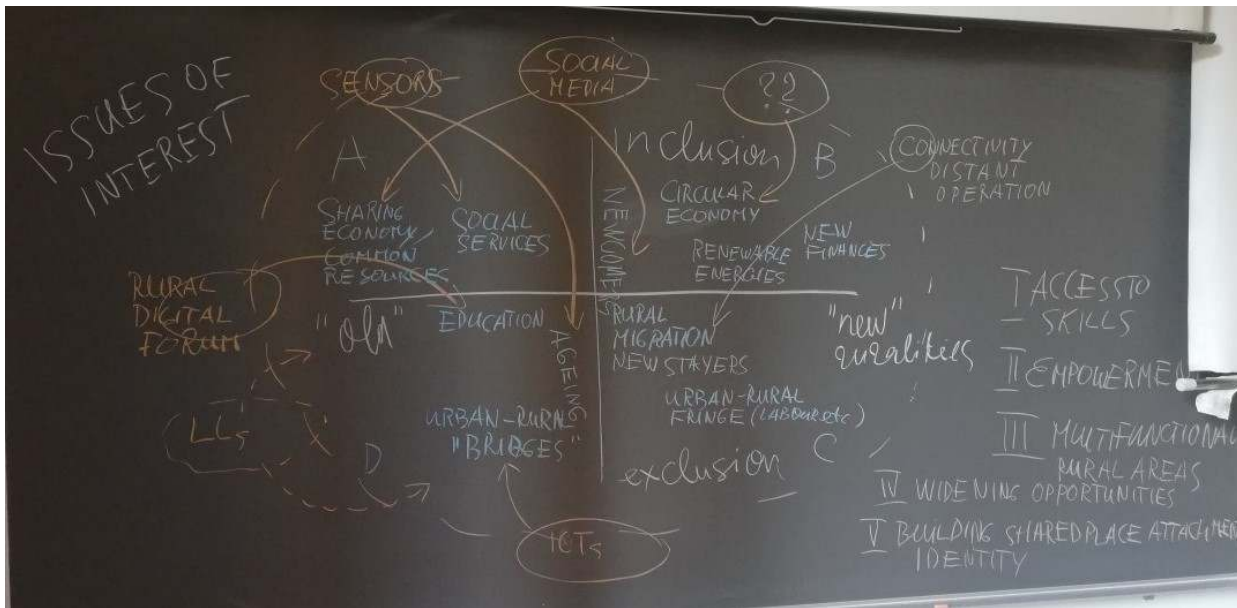 ISSUES OF
INTEREST
SENSORS
SOCIAL
MEDIA
??
A
Inclusion
B
CONNECTIVITY
DISTANT
OPERATION
SHARING
ECONOMY/
COMMON
RESOURCES
SOCIAL
SERVICES
NEWCOMERS
CIRCULAR
ECONOMY
RENEWABLE
ENERGIES
NEW
FINANCES
RURAL
DIGITAL
FORUM
"old"
EDUCATION
AGEING
RURAL
MIGRATION
NEW STAYERS
"new"
ruralities
LLs
D
URBAN-RURAL
"BRIDGES"
URBAN-RURAL
FRINGE (LABOUR etc)
exclusion
C
ICTs
I ACCESS TO
SKILLS
II EMPOWERMEN
III MULTIFUNCTIONAL
RURAL AREAS
IV WIDENING OPPORTUNITIES
V BUILDING SHARED PLACE ATTACHMEN
IDENTITY